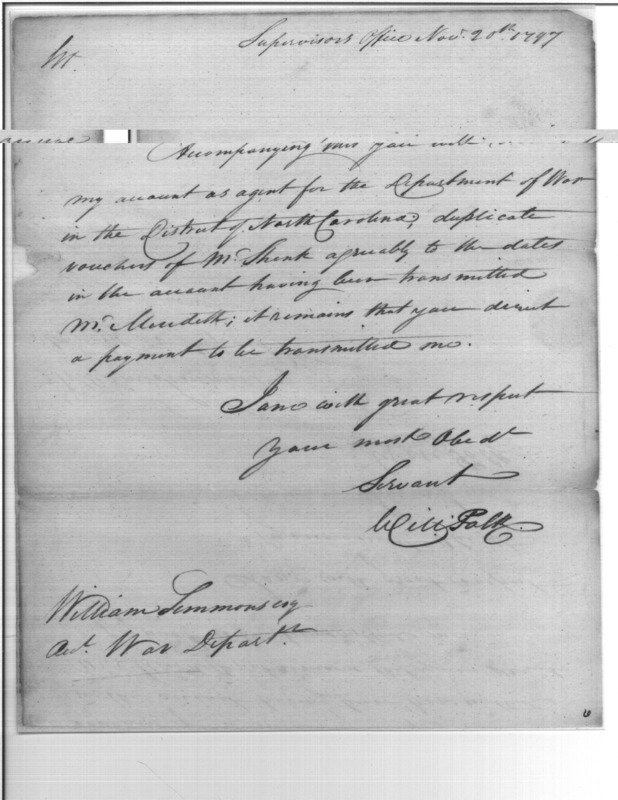 Supervisors Office Nov.r 20th 1797
Sir.
Accompanying this you will
my account as agent for the Department of War
in the District of North Carolina; duplicate
vouchers of Mr. Shenk agreeably to the dates
in the account having been transmitted
Mr. Meredith; it remains that you direct
a payment to be transmitted me.
I am with great respect
your most Obedt
Servant
Will: Polk.
William Simmons esq
Act. War Departmt.
6